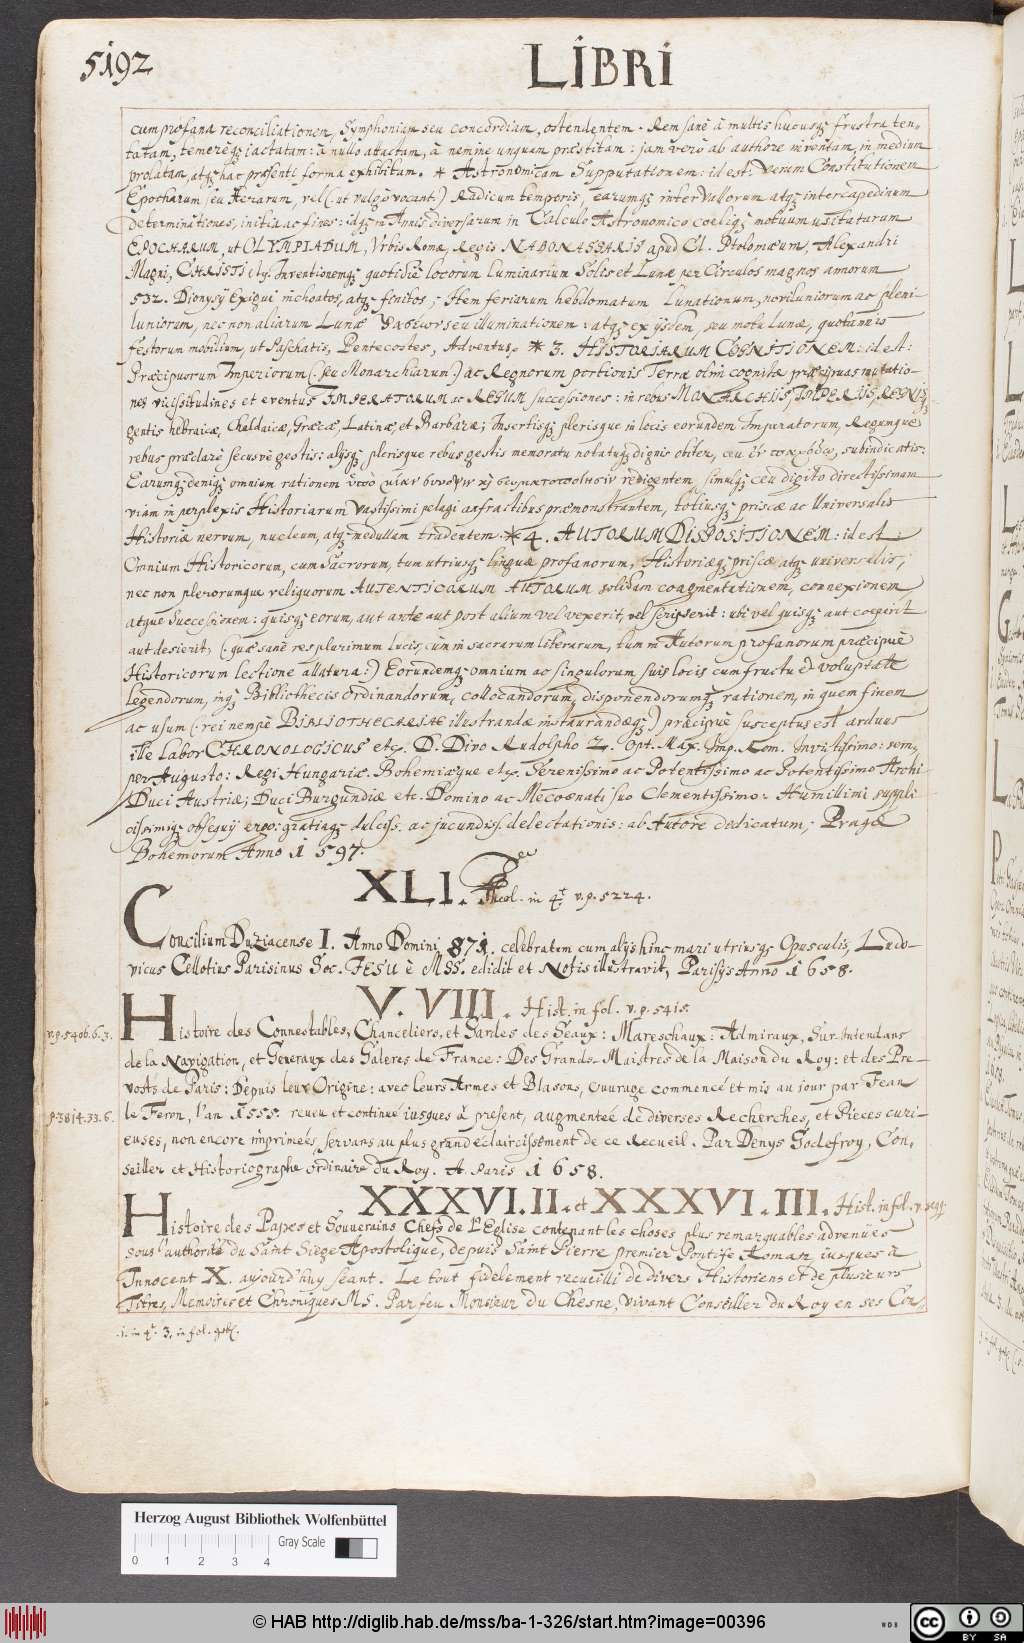 5192
LIBRI
cum profana reconciliationem, Symphoniam seu concordiam, ostendentem. Rem sanè à multis hucusq; frustra ten-
tatam, temerèq; iactatam: à nullo attactam, à nemine unquam præstitam: jam verò ab authore inventam, in medium
prolatam, atq; hac præsenti forma exhibitam. * Astronomicam Supputationem: id est: Verum Constitutionem
Epocharum seu Aerarum, vel (: ut vulgò vocant:) Radicum temporis, earumq; intervallorum atq; intercapedinum
determinationes, initia ac fines: idq; in Annis diversarum in Calculo Astronomico coeliq; motuum usitatarum
EPOCHARUM, ut OLYMPIADUM, Urbis Romæ, Regis NABONASSARIS apud Cl. Ptolomæum, Alexandri
Magni, CHRISTI etc. Inventionemq; quotidiè locorum luminarium Solis et Lunæ per Circulos magnos annorum
532. Dionysij Exigui inchoatos, atq; finitos; Item feriarum hebdomatum Lunationum, noviluniorum ac pleni-
luniorum, nec non aliarum Lunæ seu illuminationem: atq; ex ijsdem, seu motu Lunæ, quotannis
festorum mobilium, ut Paschatis, Pentecostes, Adventus. * 3. HISTORIARUM COGNITIONEM: id est:
Præcipuorum Imperiorum (: seu Monarchiarum:) ac Regnorum portionis Terræ olim cognitæ præcipuas mutatio-
nes vicissitudines et eventus IMPERATORUM ac REGUM successiones: in rebus MONARCHIIS, IMPERIIS, REGNIsq;
gentis hebraicæ, Chaldaicæ, Græcæ, Latinæ, et Barbaræ; Insertisq; plerisque in locis eorundem Imperatorum, Regumque
rebus præclarè secusvè gestis: alijsq; plerisque rebus gestis memoratu notatuq; dignis obiter, ceu ἐν παρόδῳ, subindicatis:
Earumq; deniq; omnium rationem redigentem, simulq; ceu digito directissimam
viam in perplexis Historiarum vastissimi pelagi anfractibus præmonstrantem, totiusq; priscæ ac Universalis
Historiæ nervum, nucleum, atq; medullam tradentem. * 4. AUTORUM DISPOSITIONEM: id est:
Omnium Historicorum, cum Sacrorum, tum utriusq; linguæ profanorum, Historiæq; priscæ atq; universalis;
nec non plerorumque reliquorum AUTENTICORUM AUTORUM solidam coagmentationem, connexionem
atque Successionem: quisq; eorum, aut ante aut post alium vel vixerit, vel scripserit: ubi vel quisq; aut coeperit
aut desierit, (: quæ sanè res plurimum lucis, cùm in sacrarum literarum, tum in Autorum profanorum præcipuè
Historicorum lectione allatura:) Eorundemq; omnium ac singulorum suis locis cum fructu et voluptate
legendorum, inq; Bibliothecis ordinandorum, collocandorum, disponendorumq; rationem, in quem finem
ac usum (: rei nempè BIBLIOTHECARIAE illustrandæ instaurandæq;:) præcipuè susceptus est arduus
ille Labor CHRONOLOGICUS etc. D. Divo Rudolpho 2. Opt. Max. Imp. Rom. Invictissimo: sem-
per Augusto: Regi Hungariæ. Bohemiæque etc. Serenissimo ac Potentissimo ac Potentissimo Archi-
Duci Austriæ; Duci Burgundiæ etc. Domino ac Mecoenati suo Clementissimo. Humillimi suppli-
cissimiq; obsequij ergò: gratiaq; dulciss. ac jucundiss. delectationis: ab Autore dedicatum; Pragæ
Bohemorum Anno 1597.
XLI. Theol. in 4t v.p. 5224.
Concilium Duziacense I. Anno Domini 871. celebratum cum alijs hinc mari utriusq; Opusculis, Ludo-
vicus Cellotius Parisinus Soc. JESU è MSS. edidit et Notis illustravit, Parisijs Anno 1658.
V. VIII. Hist. in fol. v.p. 5415.
v.p. 5406.6.3.
Histoire des Connestables, Chanceliers, et Gardes des Seaux: Mareschaux: Admiraux, Sur-Intendans
de la Navigation, et Generaux des Galeres de France: Des Grands-Maistres de la Maison du Roy: et des Pre-
vosts de Paris: Depuis leur Origine: avec leurs Armes et Blasons, Ouvrage commencé et mis au jour par Jean
p. 3814.33.6.
le Feron, l'an 1555. reveu et continué iusques à present, augmenteé de diverses Recherches, et Pieces curi-
euses, non encore imprimeés, servans au plus grand eclaircissement de ce Recueil. Par Denys Godefroy, Con-
seiller et Historiographe ordinaire du Roy. A. Paris 1658.
XXXVI.II. et XXXVI.III. Hist. in fol.
Histoire des Papes et Souverains Chefs de l'Eglise contenant les choses plus remarquables advenües
sous l'authorité du Saint Siege Apostolique, depuis Saint Pierre premier Pontife Romain iusques à
Innocent X. aujourd'huy seant. Le tout fidelement recueilli de divers Historiens et de plusieurs
Titres, Memoires et Chroniques MS. Par feu Monsieur du Chesne, vivant Conseiller du Roy en ses Con-
1. in 4t. 3. in fol.
Herzog August Bibliothek Wolfenbüttel
Gray Scale
0 1 2 3 4
© HAB http://diglib.hab.de/mss/ba-1-326/start.htm?image=00396
WDB
cc BY SA